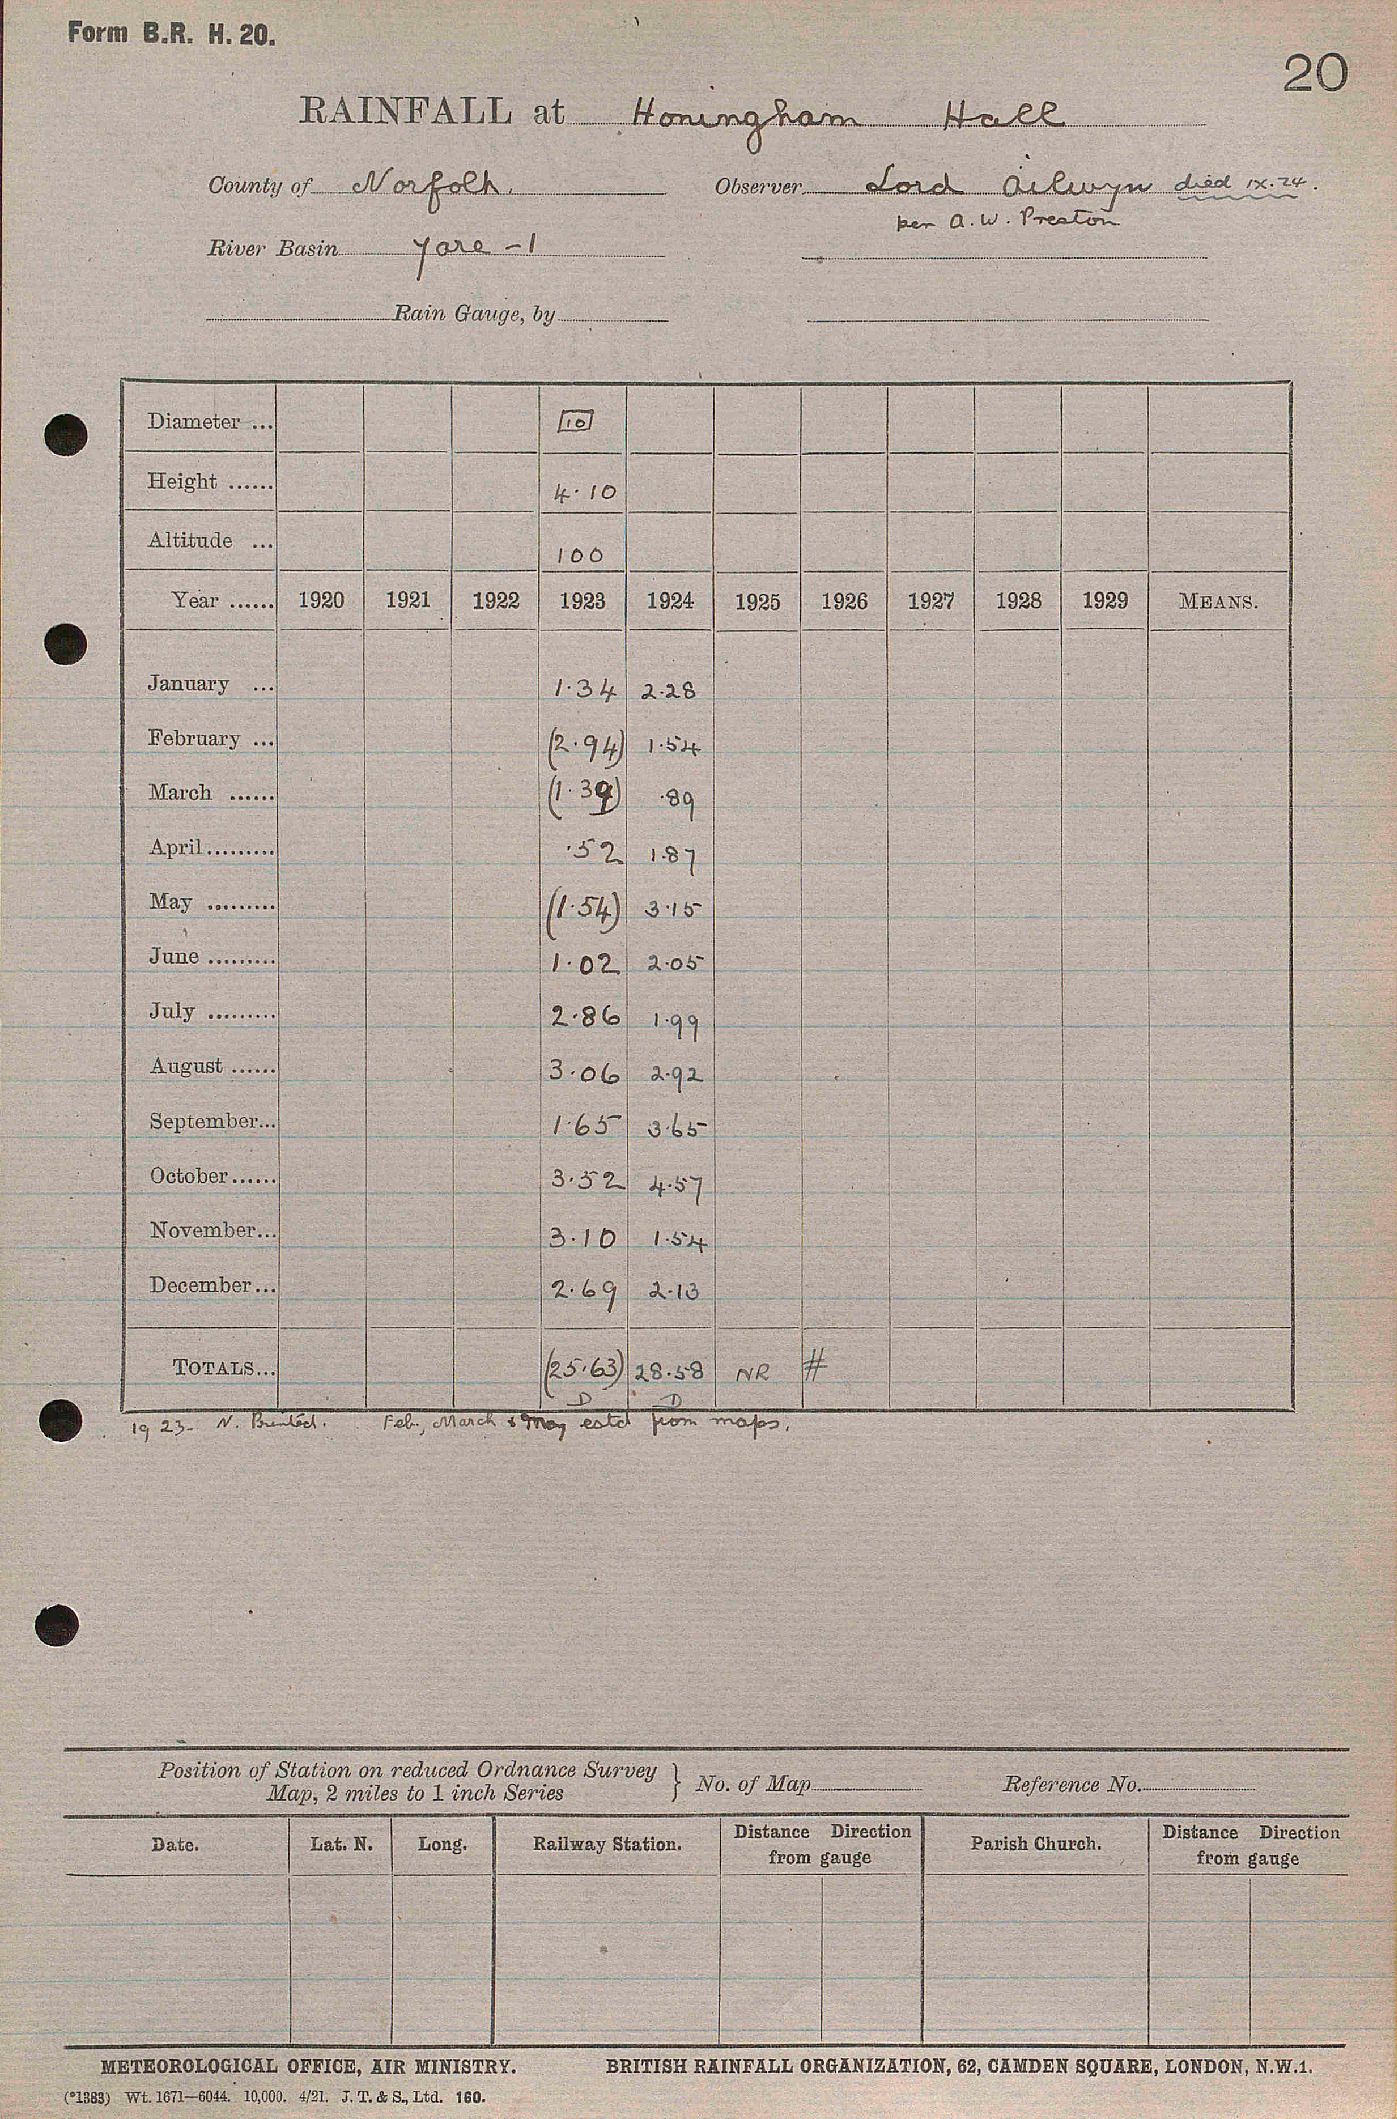 Form B.R. H. 20.
20
RAINFALL at Honingham Hall
County of Norfolk. Observer Lord Ailwyn died IX.24.
per A. W. Preston
River Basin Yare - 1
Rain Gauge, by
Diameter ... 10
Height ...... 4.10
Altitude ... 100
Year ...... 1920 1921 1922 1923 1924 1925 1926 1927 1928 1929 MEANS.
January ... 1.34 2.28
February ... (2.94) 1.54
March ...... (1.39) .89
April......... .52 1.87
May ......... (1.54) 3.15
June ......... 1.02 2.05
July ......... 2.86 1.99
August ...... 3.06 2.92
September... 1.65 3.65
October...... 3.52 4.57
November... 3.10 1.54
December... 2.69 2.13
TOTALS... (25.63) 28.58 NR #
D D
1923- N. Feb., March & May estd from maps.
Position of Station on reduced Ordnance Survey
Map, 2 miles to 1 inch Series } No. of Map Reference No.
Date. Lat. N. Long. Railway Station. Distance Direction from gauge Parish Church. Distance Direction from gauge
METEOROLOGICAL OFFICE, AIR MINISTRY. BRITISH RAINFALL ORGANIZATION, 62, CAMDEN SQUARE, LONDON, N.W.1.
(*1383) Wt. 1671—6044. 10,000. 4/21. J. T. & S., Ltd. 160.